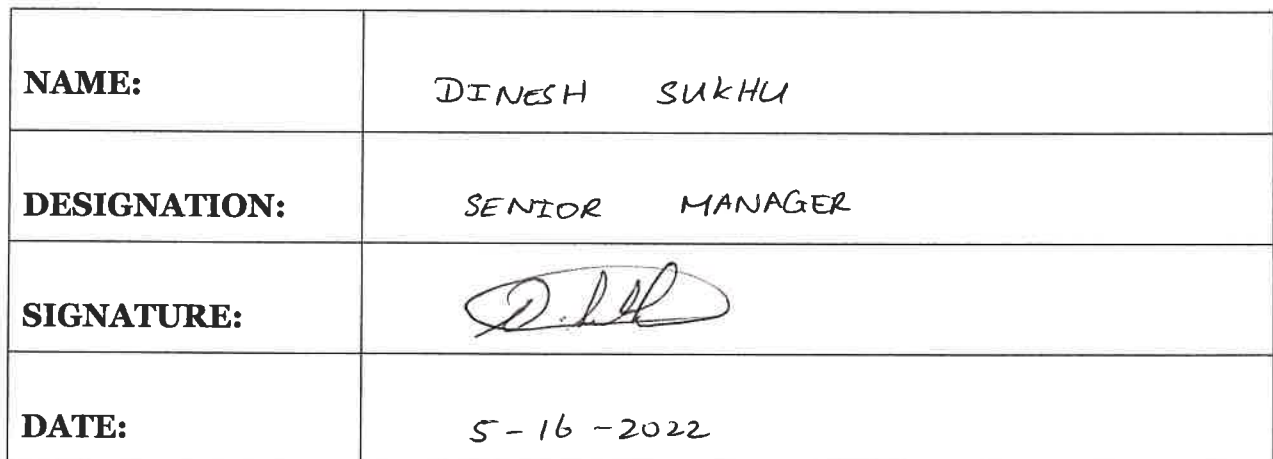 NAME: DINESH SUKHU
DESIGNATION: SENIOR MANAGER
SIGNATURE:
DATE: 5-16-2022